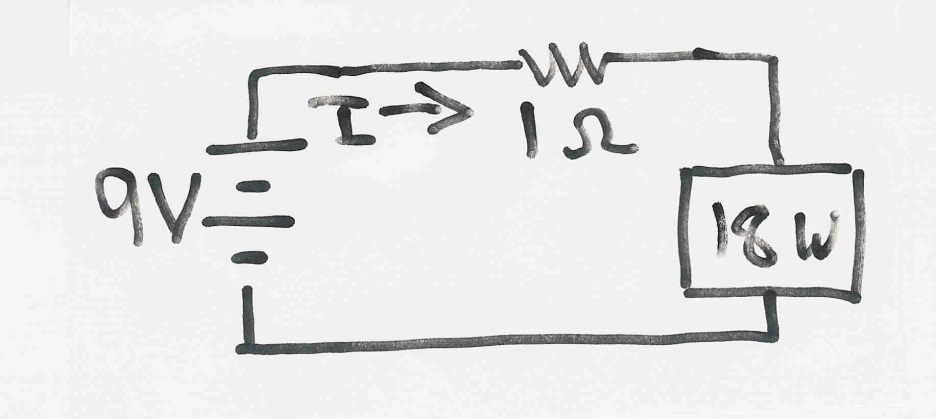 I →
1 Ω
9V
18 W